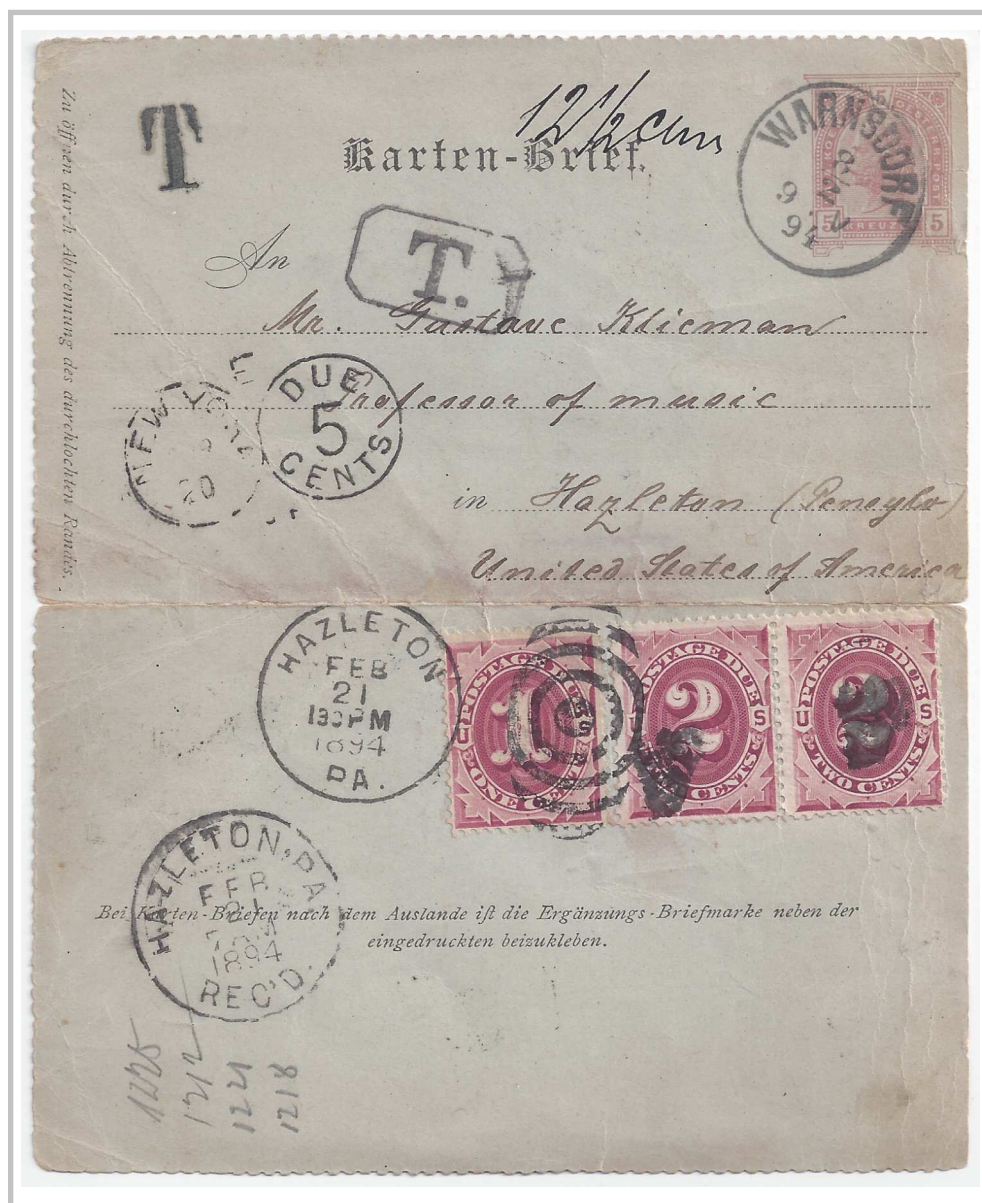 Zu öffnen durch Abtrennung des durchlochten Randes.
T
12½ cm
Karten-Brief.
WARNSDORF
9
94
5 KREUZ 5
An
T.
Mr. Gustave Klieman
Professor of music
in Hazleton (Pensylv)
United States of America
NEW YORK
20
DUE
5
CENTS
HAZLETON
FEB
21
130PM
1894
PA.
POSTAGE DUE
1
ONE CENT
POSTAGE DUE
2
CENTS
U POSTAGE DUE S
2
TWO CENTS
HAZLETON, PA
FEB
21
1894
REC'D.
Bei Karten-Briefen nach dem Auslande ist die Ergänzungs-Briefmarke neben der
eingedruckten beizukleben.
1225
1212
1221
1218